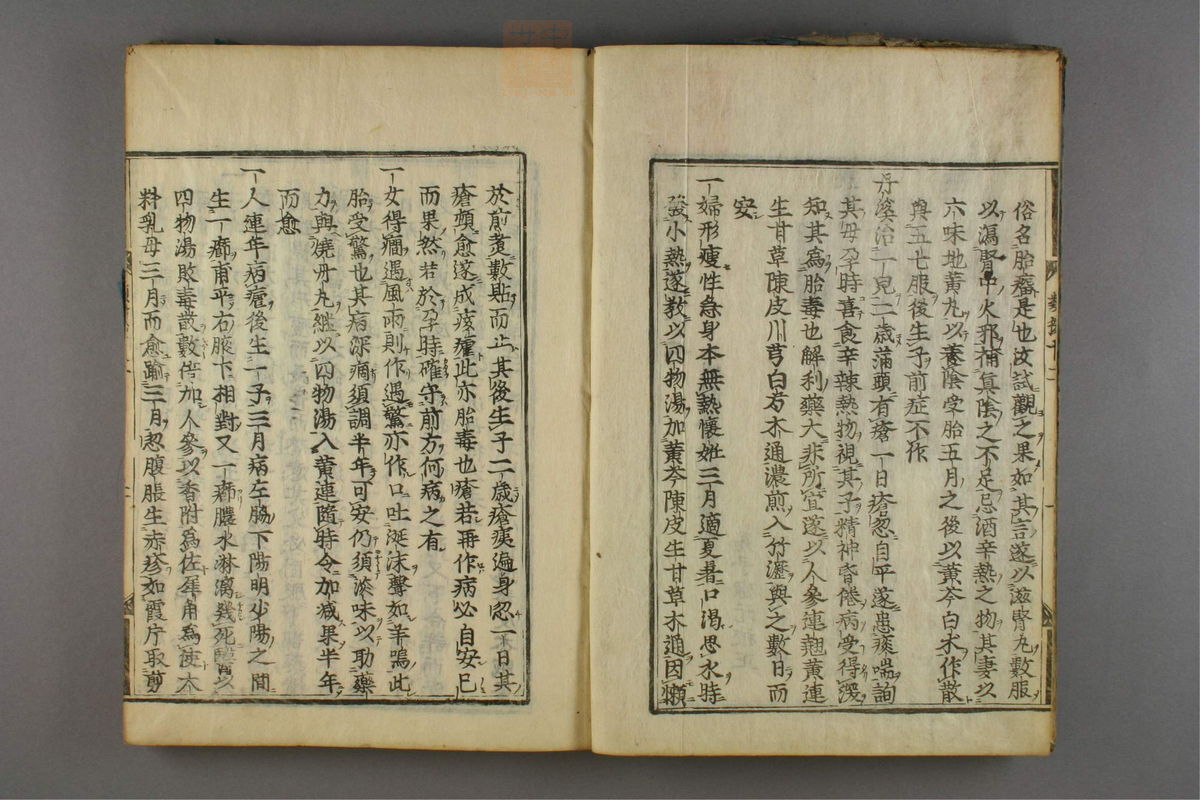 俗名胎癇是也汝試觀之果如其言遂以滋腎丸數服
以瀉腎中火邪補真陰之不足忌酒辛熱之物其妻以
六味地黄丸以養陰受胎五月之後以黄芩白朮作散
與五七服後生子前症不作
丹溪治一兒二歳滿頭有瘡一日瘡忽自平遂患痰喘詢
其母孕時喜食辛辣熱物視其子精神昏倦病受得深
知其爲胎毒也解利藥大非所宜遂以人參連翹黄連
生甘草陳皮川芎白芍木通濃煎入竹瀝與之數日而
安
一婦形瘦性急身本無熱懷姙三月適夏暑口渇思水時
發小熱遂教以四物湯加黄芩陳皮生甘草木通因懶
於煎煮數貼而止其後生子二歳瘡痍遍身忽一日其
瘡頓愈遂成痎瘧此亦胎毒也瘡若再作病必自安已
而果然若於孕時確守前方何病之有
一女得癇遇風雨則作遇驚亦作口吐涎沫聲如羊鳴此
胎受驚也其病深痼須調半年可安仍須淡味以助藥
力與燒丹丸繼以四物湯入黄連隨時令加減果半年
而愈
一人連年病瘧後生一子三月病左脇下陽明少陽之間
生一癤甫平右腋下相對又一癤膿水淋漓幾死醫以
四物湯敗毒散數倍加人參以香附爲佐犀角爲使大
料乳母三月而愈踰三月忽腹脹生赤疹如霞片取剪